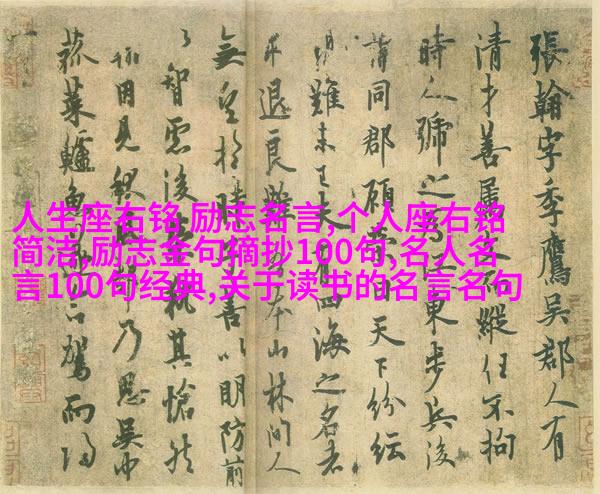 張翰字季鷹吳郡人有
清才善屬文縱任不拘
時人號之為江東步兵後
謂同郡顧榮曰天下紛紜
難未已夫有四海之名者
求退良難吾本山林間人
無望於時子善以明防前
以智慮後榮執其愴然
翰因見秋風起乃思吳中
菰菜鱸魚遂命駕而歸
人生座右铭,励志名言,个人座右铭
简洁,励志金句摘抄100句,名人名
言100句经典,关于读书的名言名句